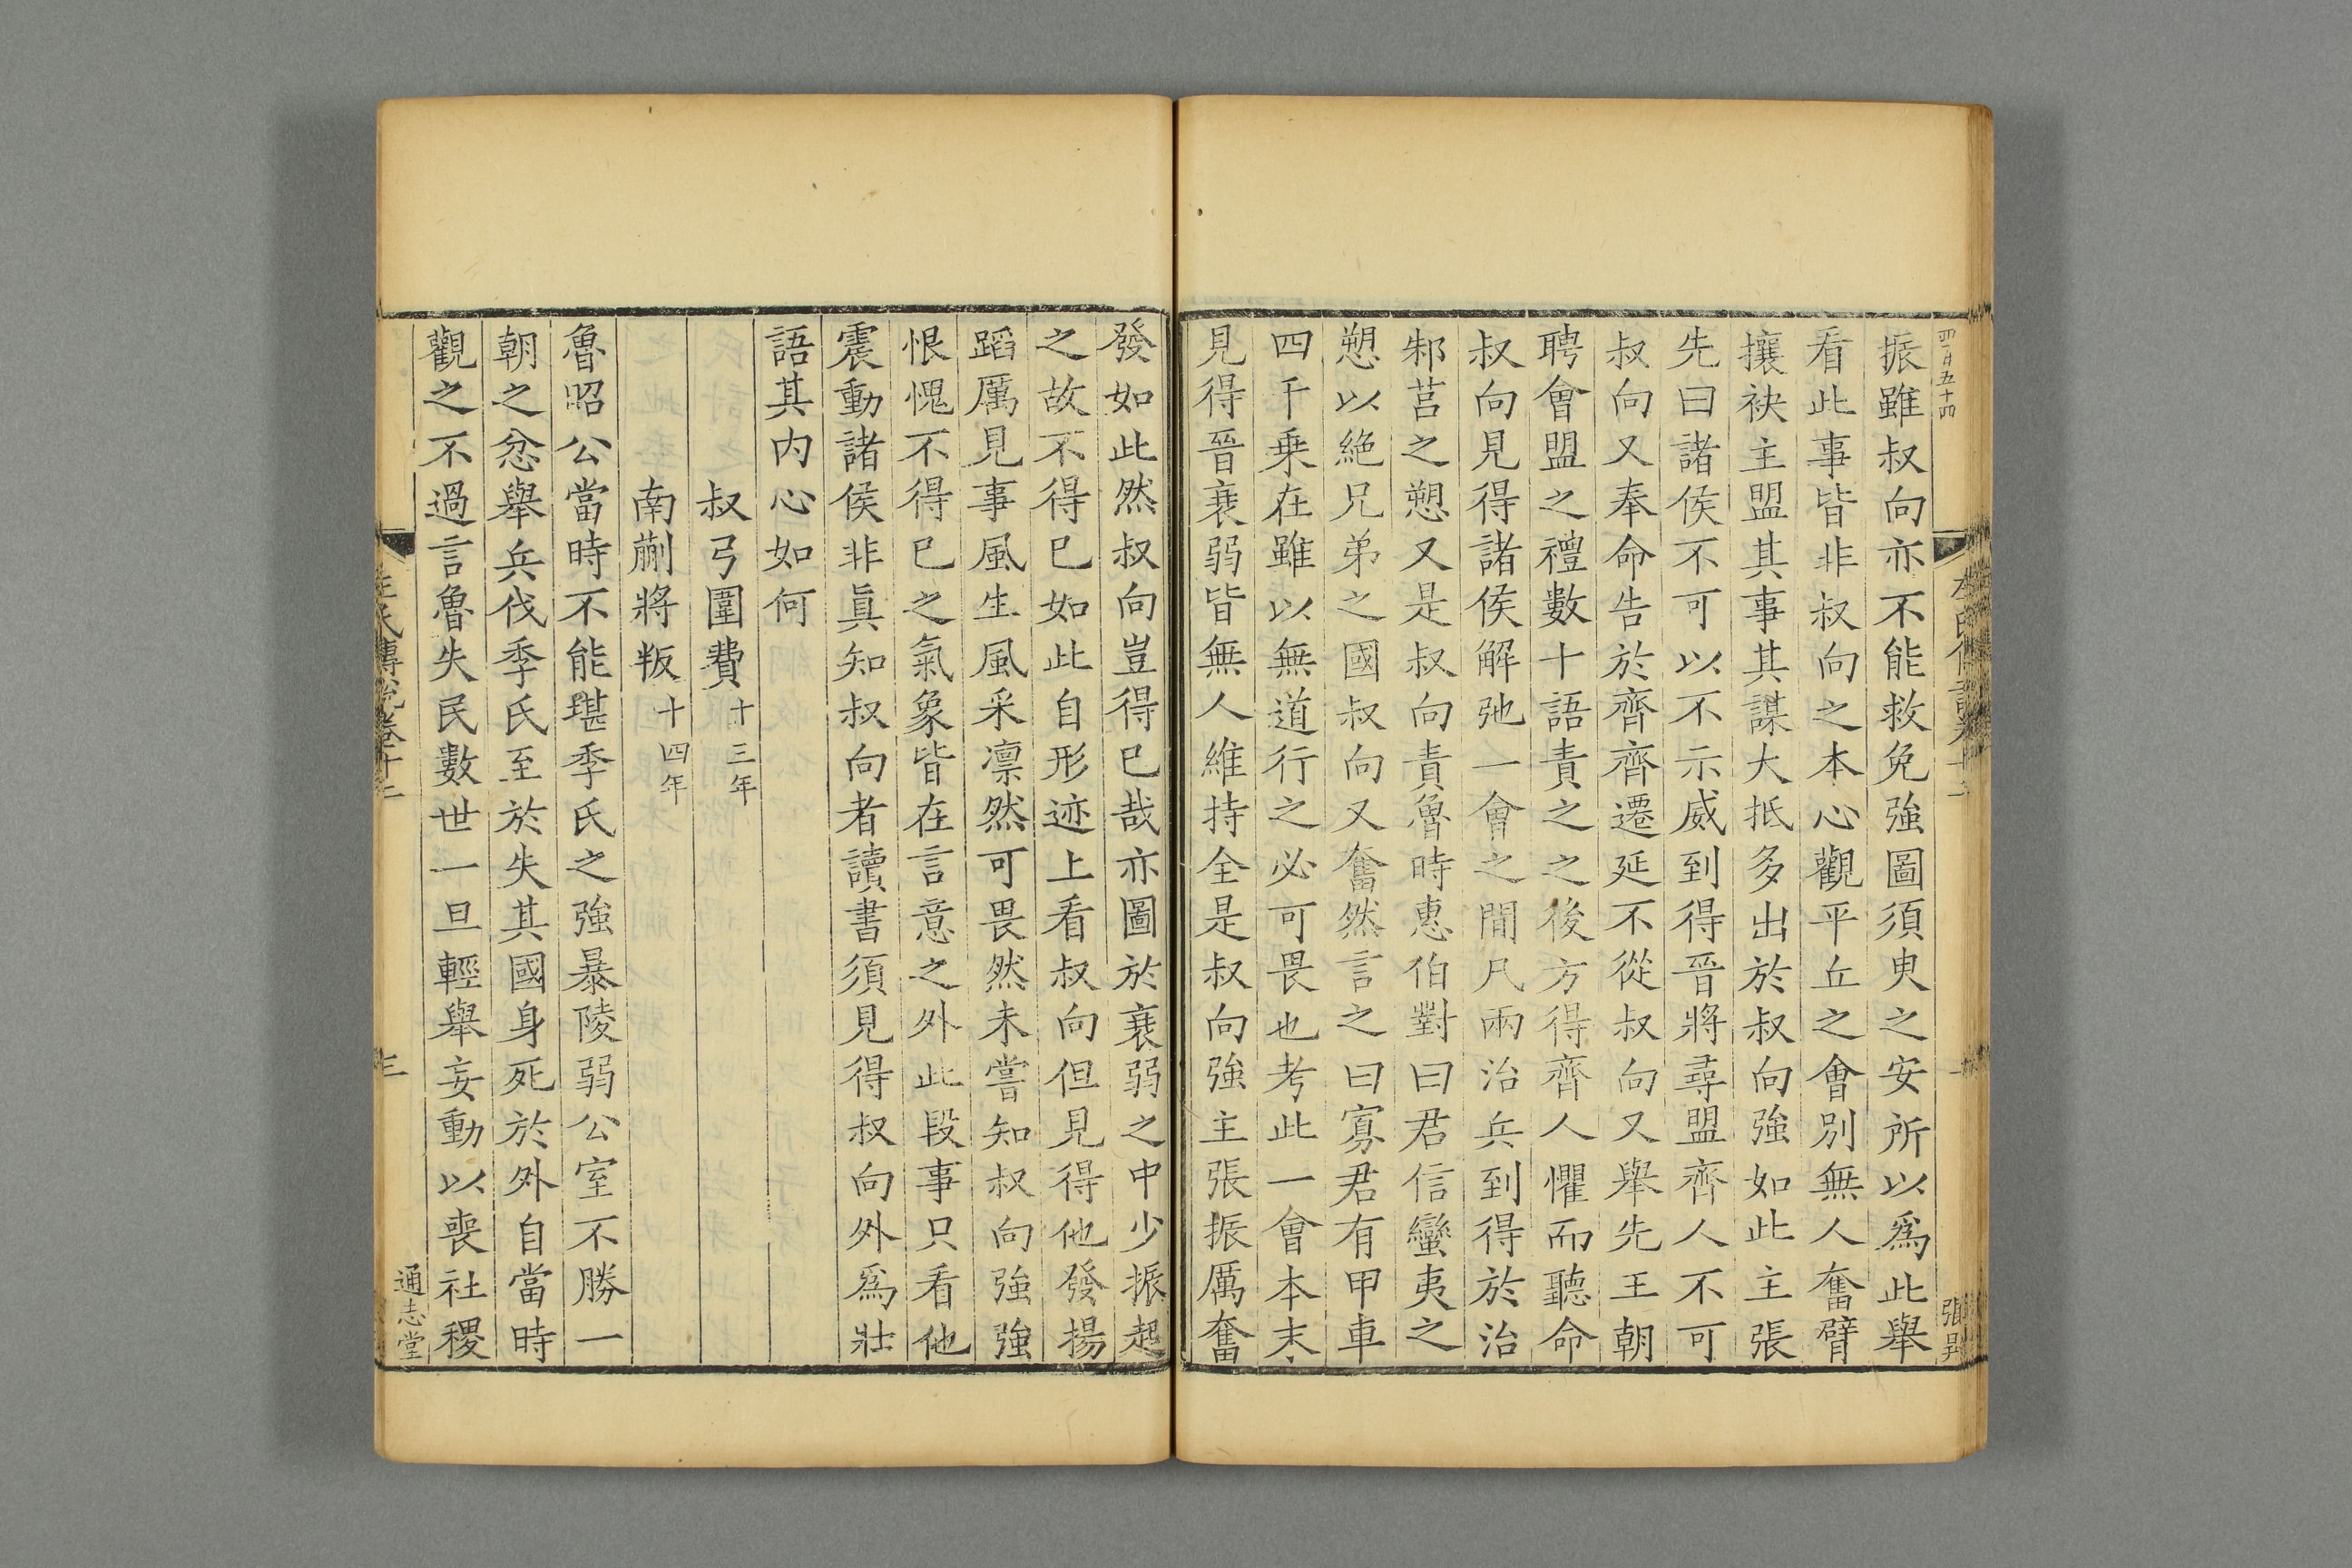 振雖叔向亦不能救免強圖須臾之安所以爲此舉
看此事皆非叔向之本心觀平丘之會別無人奮臂
攘袂主盟其事其謀大抵多出於叔向強如此主張
先曰諸侯不可以不示威到得晉將尋盟齊人不可
叔向又奉命告於齊齊遷延不從叔向又舉先王朝
聘會盟之禮數十語責之之後方得齊人懼而聽命
叔向見得諸侯解弛一會之間凡兩治兵到得於治
邾莒之愬又是叔向責魯時惠伯對曰君信蠻夷之
愬以絕兄弟之國叔向又奮然言之曰寡君有甲車
四千乗在雖以無道行之必可畏也考此一會本末
見得晉衰弱皆無人維持全是叔向強主張振厲奮
發如此然叔向豈得已哉亦圖於衰弱之中少振起
之故不得已如此自形迹上看叔向但見得他發揚
蹈厲見事風生風采凛然可畏然未嘗知叔向強強
恨愧不得已之氣象皆在言意之外此段事只看他
震動諸侯非眞知叔向者讀書須見得叔向外爲壯
語其内心如何
叔弓圍費十三年
南蒯將叛十四年
魯昭公當時不能堪季氏之強暴陵弱公室不勝一
朝之忿舉兵伐季氏至於失其國身死於外自當時
觀之不過言魯失民數世一旦輕舉妄動以喪社稷
左氏傳說卷十二
通志堂